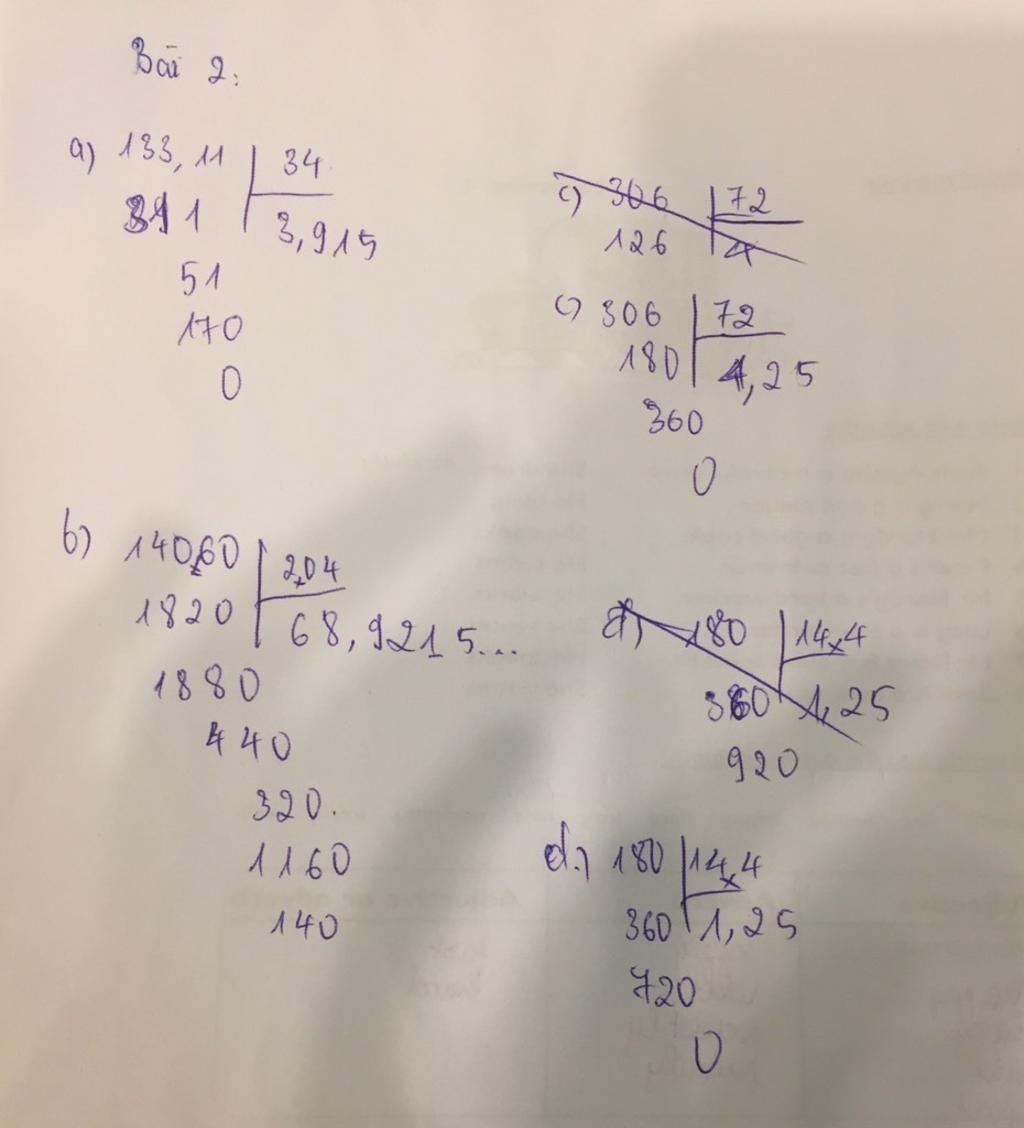 Bài 2:
a) 133,11 34
391 3,915
51
170
0
b) 140,60 2,04
1820 68,9215...
1880
440
320.
1160
140
c) 306 72
126 4
c) 306 72
180 4,25
360
0
d) 180 14,4
360 1,25
920
d.) 180 14,4
360 1,25
720
0